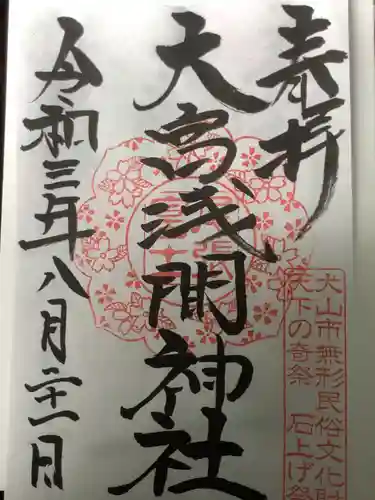 奉拝
犬山市無形民俗文化財
天下の奇祭 石上げ祭
大宮浅間神社
令和三年八月二十一日